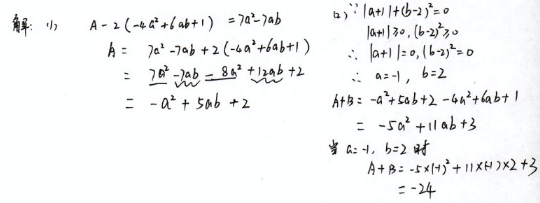 解：(1) A-2(-4a²+6ab+1) =7a²-7ab
A= 7a²-7ab+2(-4a²+6ab+1)
= 7a²-7ab-8a²+12ab+2
= -a²+5ab+2
(2) ∵ |a+1|+(b-2)²=0
|a+1|≥0, (b-2)²≥0
∴ |a+1|=0, (b-2)²=0
∴ a=-1, b=2
A+B= -a²+5ab+2-4a²+6ab+1
= -5a²+11ab+3
当 a=-1, b=2 时
A+B=-5×(-1)²+11×(-1)×2+3
=-24